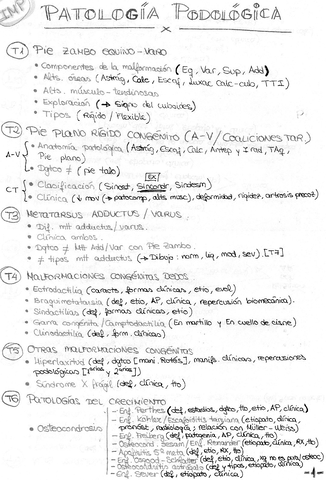 IMP
PATOLOGÍA PODOLÓGICA
T1) PIE ZAMBO EQUINO-VARO
• Componentes de la malformación (Eq, Var, Sup, Add)
• Alts. óseas (Astrág, Calc, Escaf, Luxac calc-cub, TTI)
• Alts. músculo-tendinosas
• Exploración (→ Signo del cuboides)
• Tipos (Rígido / Flexible)
T2) PIE PLANO RÍGIDO CONGÉNITO (A-V / COALICIONES TAR.)
A-V • Anatomía patológica (Astrág, Escaf, Calc, Antep y 1 rad, TAq, Pie plano)
• Dgtco ≠ (pie talo)
EX
CT • Clasificación (Sinost, Sincondr, Sindesm)
• Clínica (↓ mov (→ patocomp, alts musc), deformidad, rigidez, artrosis precoz)
T3) METATARSUS ADDUCTUS / VARUS
• Dif. mtt adductus / varus.
• Clínica ambos.
• Dgtco ≠ Mtt Add/Var con Pie Zambo.
• ≠ tipos mtt adductus (→ Dibujo: norm, lig, mod, sev). [T7]
T4) MALFORMACIONES CONGÉNITAS DEDOS
• Ectrodactilia (caracts, formas clínicas, etio, evol)
• Braquimetatarsia (def, etio, AP, clínica, repercusión biomecánica).
• Sindactilias (def, formas clínicas, etio)
• Garra congénita / Camptodactilia (En martillo y En cuello de cisne)
• Clinodactilia (def, form. clínicas)
T5) OTRAS MALFORMACIONES CONGÉNITAS
• Hiperlaxitud (def, dgtco [mani. Rotés], manif. clínicas, repercusiones
podológicas [1arias y 2arias])
• Síndrome X frágil (def, clínica, tto)
T6) PATOLOGÍAS DEL CRECIMIENTO
• Osteocondrosis
- Enf. Perthes (def, estadíos, dgtco, tto, etio, AP, clínica)
- Enf. Köhler / Escafoiditis tarsiana (etiopat, clínica,
pronóst, radiología; relación con Müller-Weiss)
- Enf. Freiberg (def, patogenia, AP, clínica, tto)
- Osteocond. Sesam / Enf. Renander (etiopato, clínica, RX, tto)
- Apofisitis 5º meta (def, etio, RX, tto)
- Enf. Osgood-Schlatter (def, etio, clínica, xq no es pura osteoc)
- Osteocondritis astrágalo (def y tipos, etiopato, clínica)
- Enf. Sever (def, etiopato, clínica)
-1-